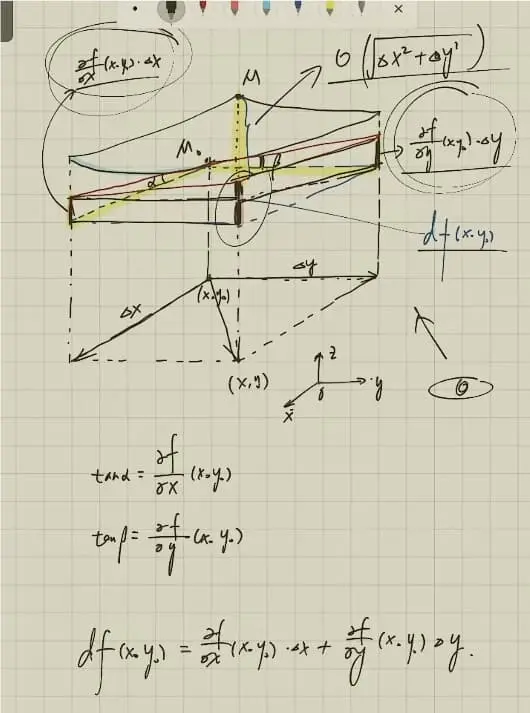 ∂f/∂x (x₀y₀)·Δx
M
O(√(Δx² + Δy²))
M₀
α
β
∂f/∂y (x₀y₀)·Δy
df(x₀y₀)
Δy
Δx
(x₀y₀)
(x,y)
z
y
o
x
①
tanα = ∂f/∂x (x₀y₀)
tanβ = ∂f/∂y (x₀ y₀)
df(x₀y₀) = ∂f/∂x (x₀y₀)·Δx + ∂f/∂y (x₀ y₀) Δy.